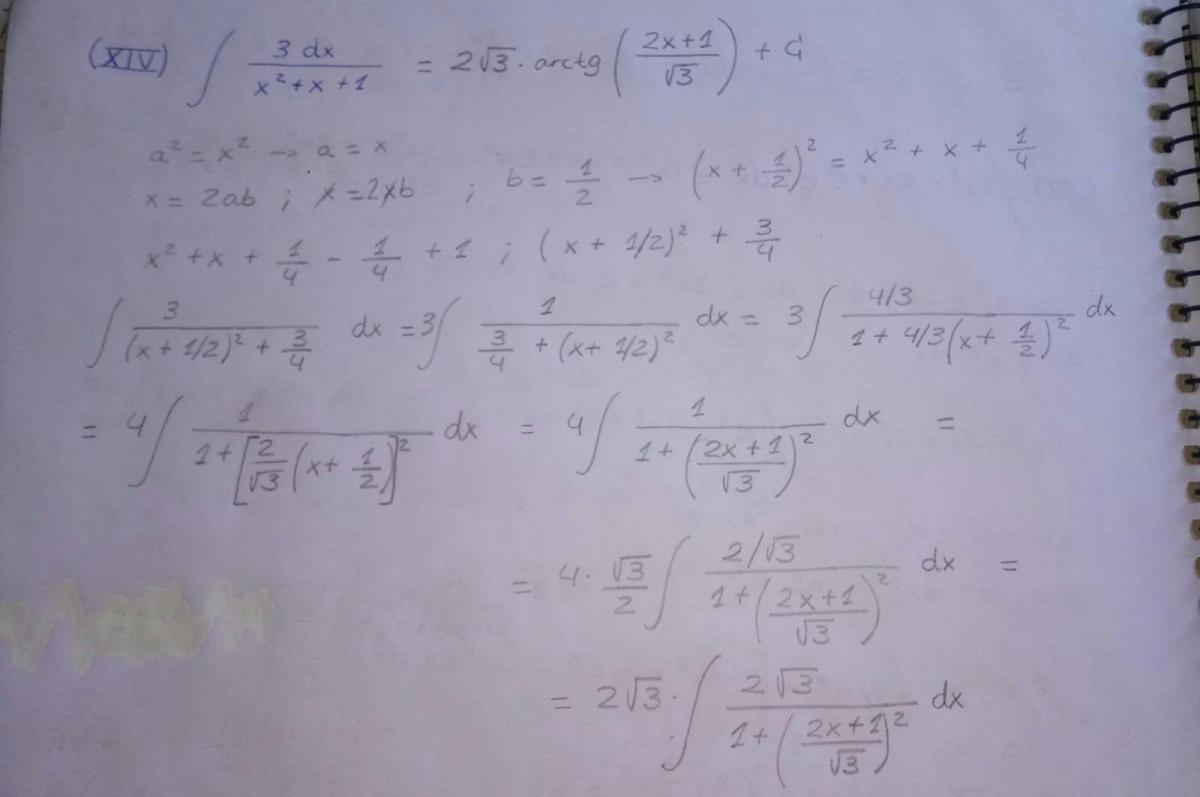 (XIV) ∫ 3 dx / (x² + x + 1) = 2√3 · arctg ((2x+1)/√3) + C
a² = x² → a = x
x = 2ab ; x = 2xb ; b = 1/2 → (x + 1/2)² = x² + x + 1/4
x² + x + 1/4 - 1/4 + 1 ; (x + 1/2)² + 3/4
∫ 3 / ((x + 1/2)² + 3/4) dx = 3 ∫ 1 / (3/4 + (x + 1/2)²) dx = 3 ∫ (4/3) / (1 + 4/3 (x + 1/2)²) dx
= 4 ∫ 1 / (1 + [2/√3 (x + 1/2)]²) dx = 4 ∫ 1 / (1 + ((2x+1)/√3)²) dx =
= 4 · √3/2 ∫ (2/√3) / (1 + ((2x+1)/√3)²) dx =
= 2√3 · ∫ 2√3 / (1 + ((2x+1)/√3)²) dx